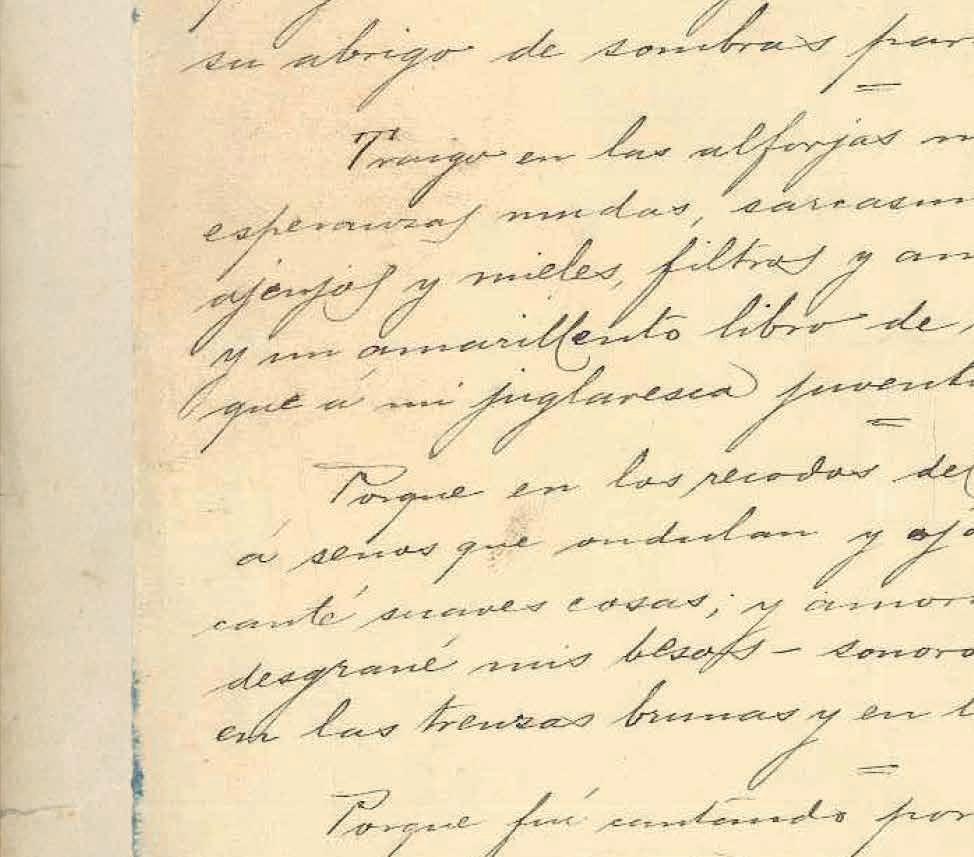 su abrigo de sombras par
Traigo en las alforjas
esperanzas mudas, sarcasm
ajenjos y mieles, filtros y am
y un amarillento libro de
que á mi juglaresca juvent
Porque en los recodos del
á senos que ondulan y ojo
canté suaves cosas; y amor
desgrané mis besos - sonoro
en las trenzas brunas y en l
Porque fuí cantando por